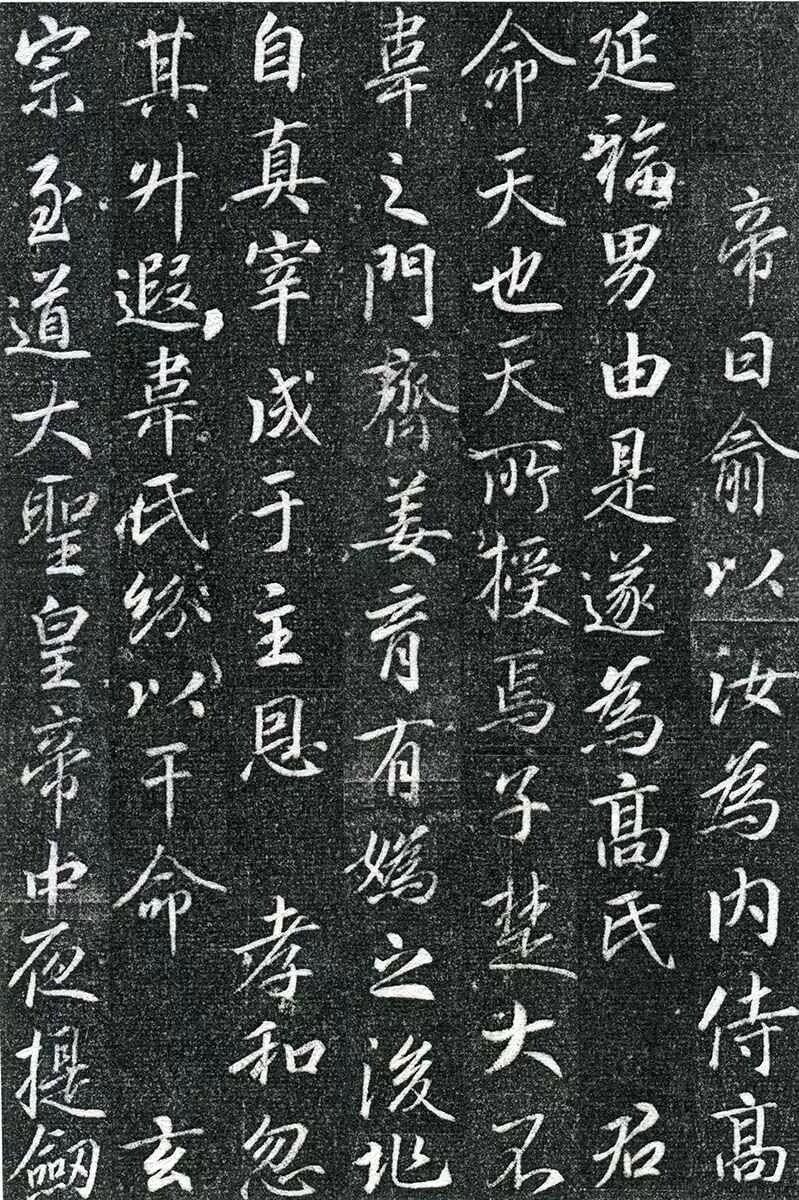 帝曰俞以汝為內侍高
延福男由是遂為高氏 君
命天也天所授焉子楚大不
韋之門齊姜育有媯之後兆
自真宰成于主恩 孝和忽
其升遐韋氏紛以干命 玄
宗至道大聖皇帝中夜提劒